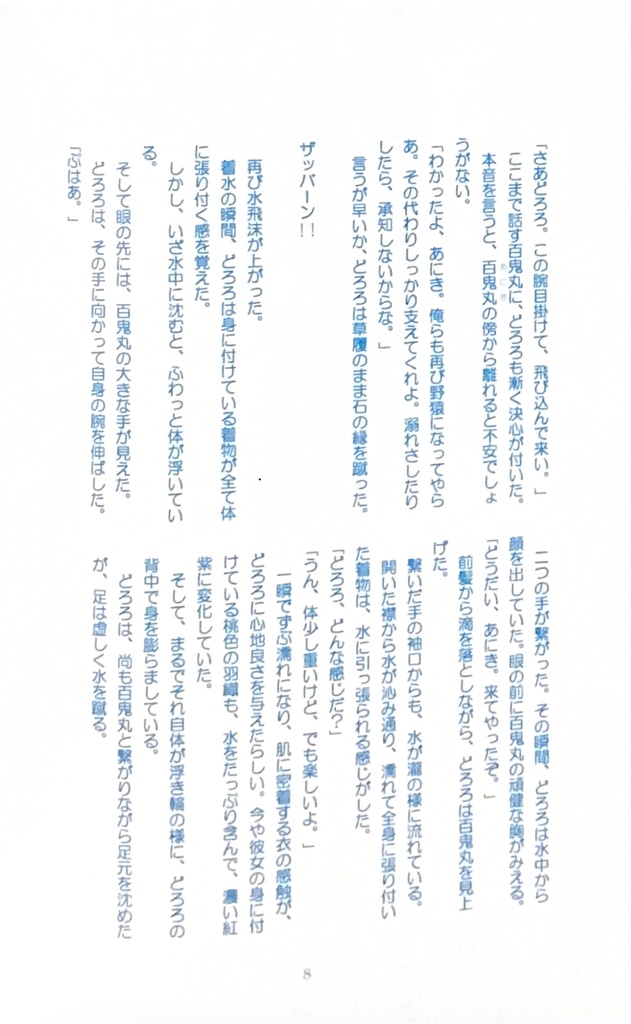 「さあどろろ。この腕目掛けて、飛び込んで来い。」
ここまで話す百鬼丸に、どろろも漸く決心が付いた。
本音を言うと、百鬼丸の傍から離れると不安でしょ
うがない。
「わかったよ、あにき。俺らも再び野猿になってやら
あ。その代わりしっかり支えてくれよ。溺れさしたり
したら、承知しないからな。」
言うが早いか、どろろは草履のまま石の縁を蹴った。
ザッバーン!!
再び水飛沫が上がった。
着水の瞬間、どろろは身に付けている着物が全て体
に張り付く感を覚えた。
しかし、いざ水中に沈むと、ふわっと体が浮いてい
る。
そして眼の先には、百鬼丸の大きな手が見えた。
どろろは、その手に向かって自身の腕を伸ばした。
「ぷはあ。」
二つの手が繋がった。その瞬間、どろろは水中から
顔を出していた。眼の前に百鬼丸の頑健な胸がみえる。
「どうだい、あにき。来てやったぞ。」
前髪から滴を落としながら、どろろは百鬼丸を見上
げた。
繋いだ手の袖口からも、水が瀧の様に流れている。
開いた襟から水が沁み通り、濡れて全身に張り付い
た着物は、水に引っ張られる感じがした。
「どろろ、どんな感じだ？」
「うん、体少し重いけど、でも楽しいよ。」
一瞬でずぶ濡れになり、肌に密着する衣の感触が、
どろろに心地良さを与えたらしい。今や彼女の身に付
けている桃色の羽織も、水をたっぷり含んで、濃い紅
紫に変化していた。
そして、まるでそれ自体が浮き輪の様に、どろろの
背中で身を膨らましている。
どろろは、尚も百鬼丸と繋がりながら足元を沈めた
が、足は虚しく水を蹴る。
8